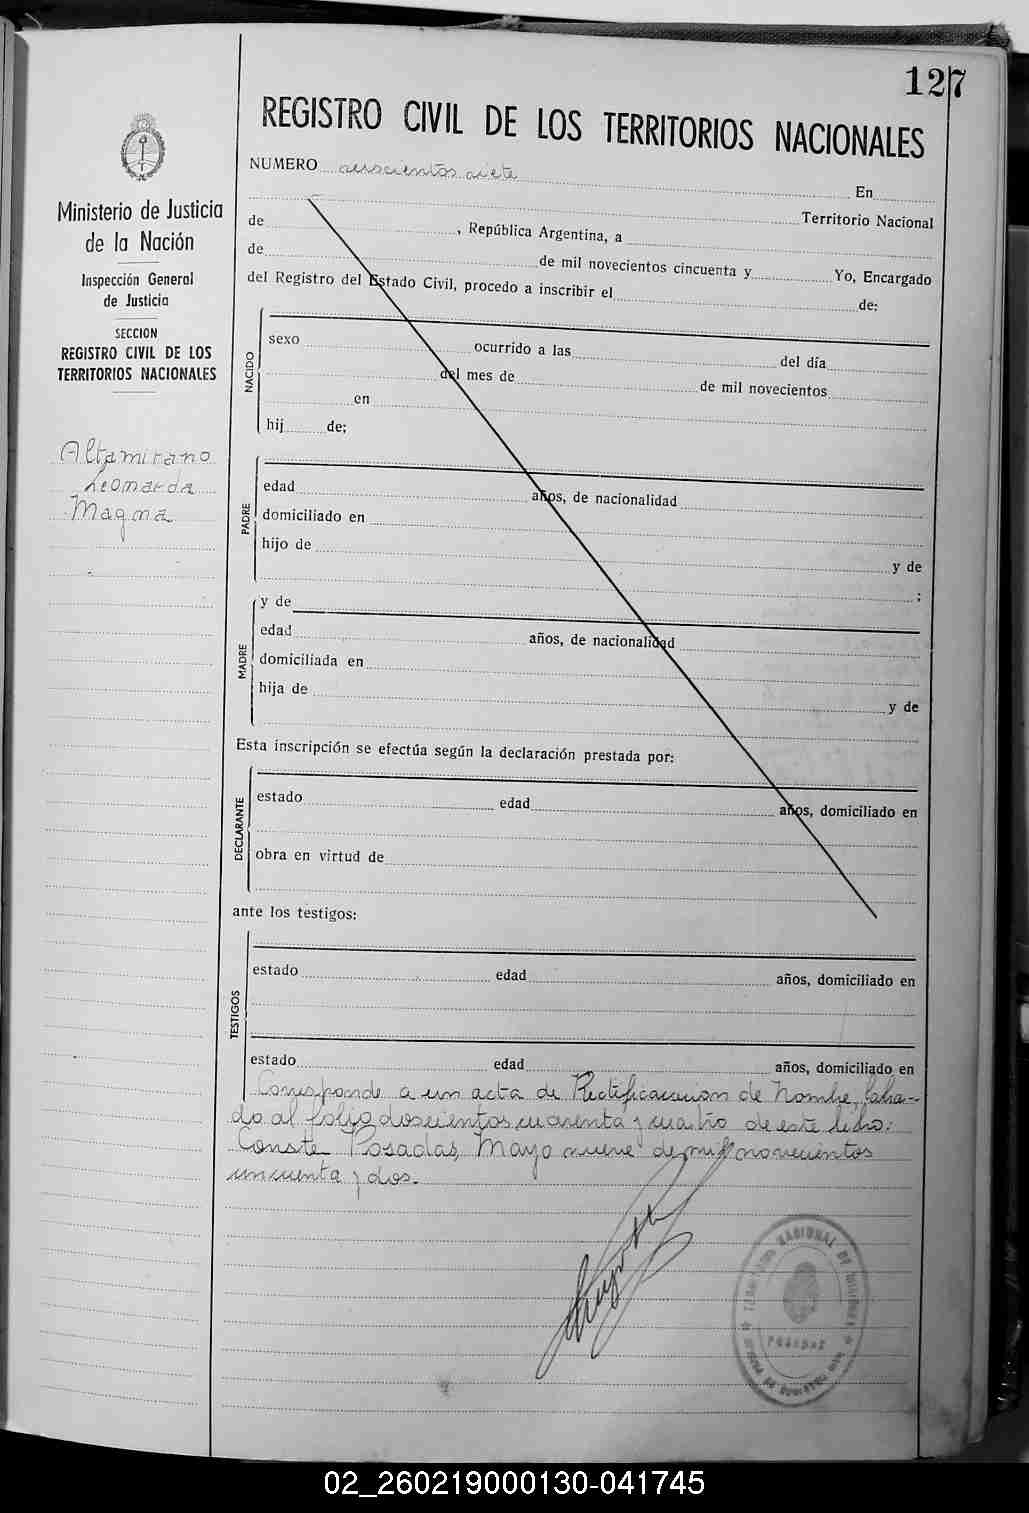 127
REGISTRO CIVIL DE LOS TERRITORIOS NACIONALES
Ministerio de Justicia
de la Nación
Inspección General
de Justicia
SECCION
REGISTRO CIVIL DE LOS
TERRITORIOS NACIONALES
Altamirano
Leonarda
Magna
NUMERO siete En
Territorio Nacional
de , República Argentina, a
de de mil novecientos cincuenta y Yo, Encargado
del Registro del Estado Civil, procedo a inscribir el de:
NACIDO
sexo ocurrido a las del día
del mes de de mil novecientos
en
hij de;
PADRE
edad años, de nacionalidad
domiciliado en
hijo de y de
;
MADRE
y de
edad años, de nacionalidad
domiciliada en
hija de y de
Esta inscripción se efectúa según la declaración prestada por:
DECLARANTE
estado edad años, domiciliado en
obra en virtud de
ante los testigos:
TESTIGOS
estado edad años, domiciliado en
estado edad años, domiciliado en
Corresponde a un acta de Rectificación de Nombre, labra-
do al folio doscientos cuarenta y cuatro de este libro:
Conste Posadas, Mayo nueve de mil novecientos
cincuenta y dos.
POSADAS
02_260219000130-041745